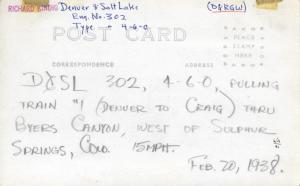 RICHARD KINDIG
Denver & Salt Lake
(D&RGW)
Eng. No. 302
Type = 4-6-0
POST CARD
PLACE
STAMP
HERE
CORRESPONDENCE
ADDRESS
D&SL 302, 4-6-0, PULLING
TRAIN #1 (DENVER TO CRAIG) THRU
BYERS CANYON, WEST OF SULPHUR
SPRINGS, COLO. 15MPH.
FEB. 20, 1938.